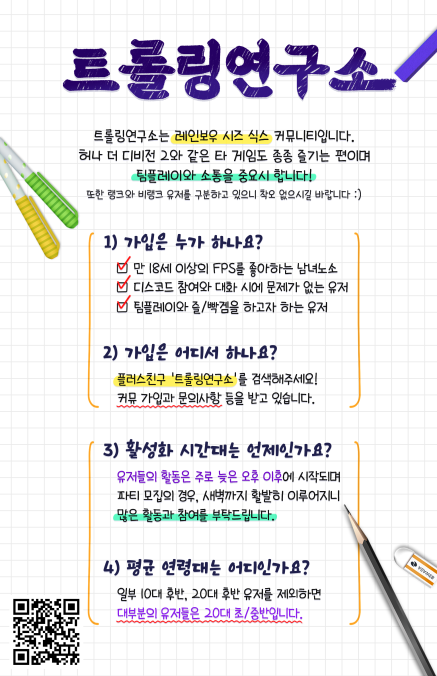 트롤링연구소
트롤링연구소는 레인보우 시즈 식스 커뮤니티입니다.
허나 더 디비전 2와 같은 타 게임도 종종 즐기는 편이며
팀플레이와 소통을 중요시 합니다!
또한 랭크와 비랭크 유저를 구분하고 있으니 착오 없으시길 바랍니다 :)
1) 가입은 누가 하나요?
만 18세 이상의 FPS를 좋아하는 남녀노소
디스코드 참여와 대화 시에 문제가 없는 유저
팀플레이와 즐/빡겜을 하고자 하는 유저
2) 가입은 어디서 하나요?
플러스친구 '트롤링연구소'를 검색해주세요!
커뮤 가입과 문의사항 등을 받고 있습니다.
3) 활성화 시간대는 언제인가요?
유저들의 활동은 주로 늦은 오후 이후에 시작되며
파티 모집의 경우, 새벽까지 활발히 이루어지니
많은 활동과 참여를 부탁드립니다.
4) 평균 연령대는 어디인가요?
일부 10대 후반, 20대 후반 유저를 제외하면
대부분의 유저들은 20대 초/중반입니다.